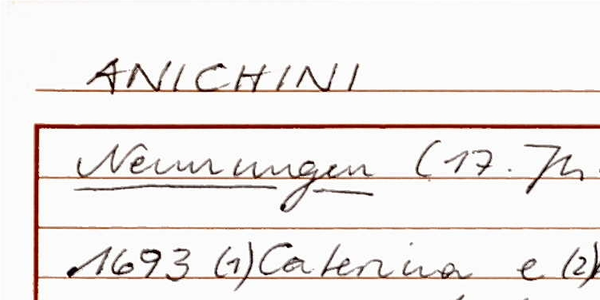 ANICHINI
Nennungen (17. Jh.
1693 (1) Caterina e (2)